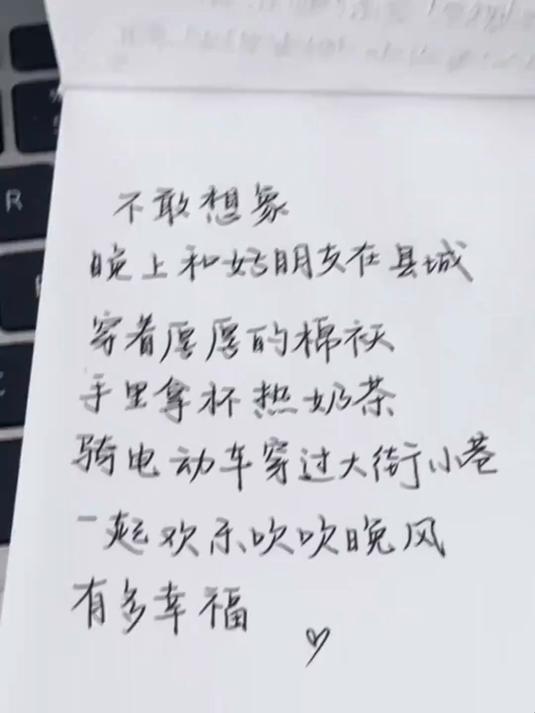 不敢想象
晚上和好朋友在县城
穿着厚厚的棉袄
手里拿杯热奶茶
骑电动车穿过大街小巷
一起欢乐吹吹晚风
有多幸福
R